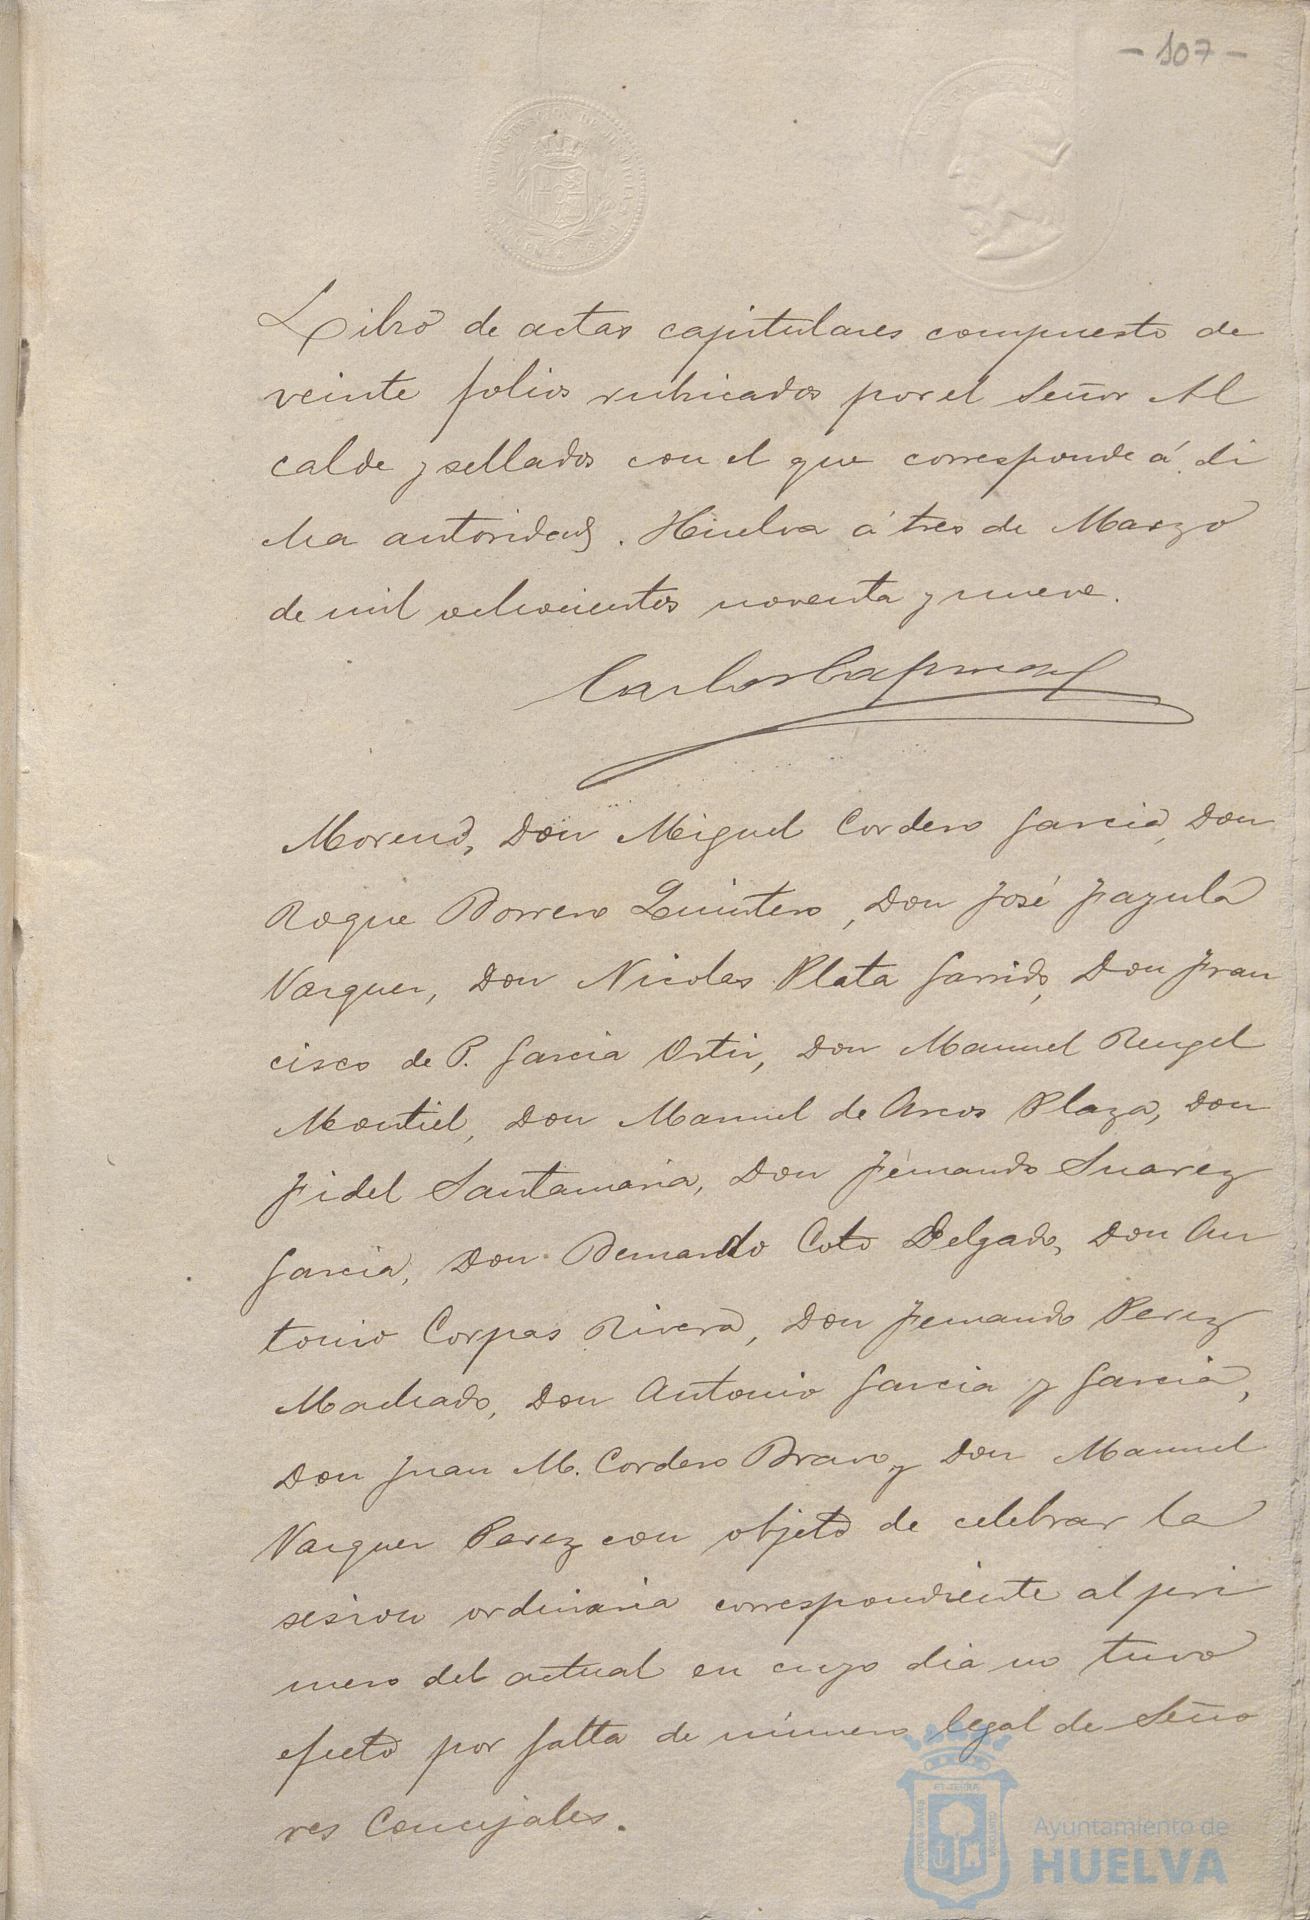 - 107 -
Libro de actas capitulares compuesto de
veinte folios rubricados por el Señor Al
calde y sellados con el que corresponde á di
cha autoridad. Huelva á tres de Marzo
de mil ochocientos noventa y nueve.
Carlos
Moreno, Don Miguel Cordero Garcia, Don
Roque Borrero Quintero, Don José Jazula
Varquer, Don Nicolas Plata Garrido, Don Fran
cisco de P. Garcia Ortir, Don Manuel Rengel
Montiel, Don Manuel de Arcos Plaza, Don
Fidel Santamaria, Don Fernando Suarez
Garcia, Don Bernardo Coto Delgado, Don An
tonio Corpas Rivera, Don Fernando Perez
Machado, Don Antonio Garcia y Garcia,
Don Juan M. Cordero Bravo y Don Manuel
Varquer Perez con objeto de celebrar la
sesion ordinaria correspondiente al pri
mero del actual en cuyo dia no tuvo
efecto por falta de número legal de Seño
res Concejales.
Ayuntamiento de
HUELVA